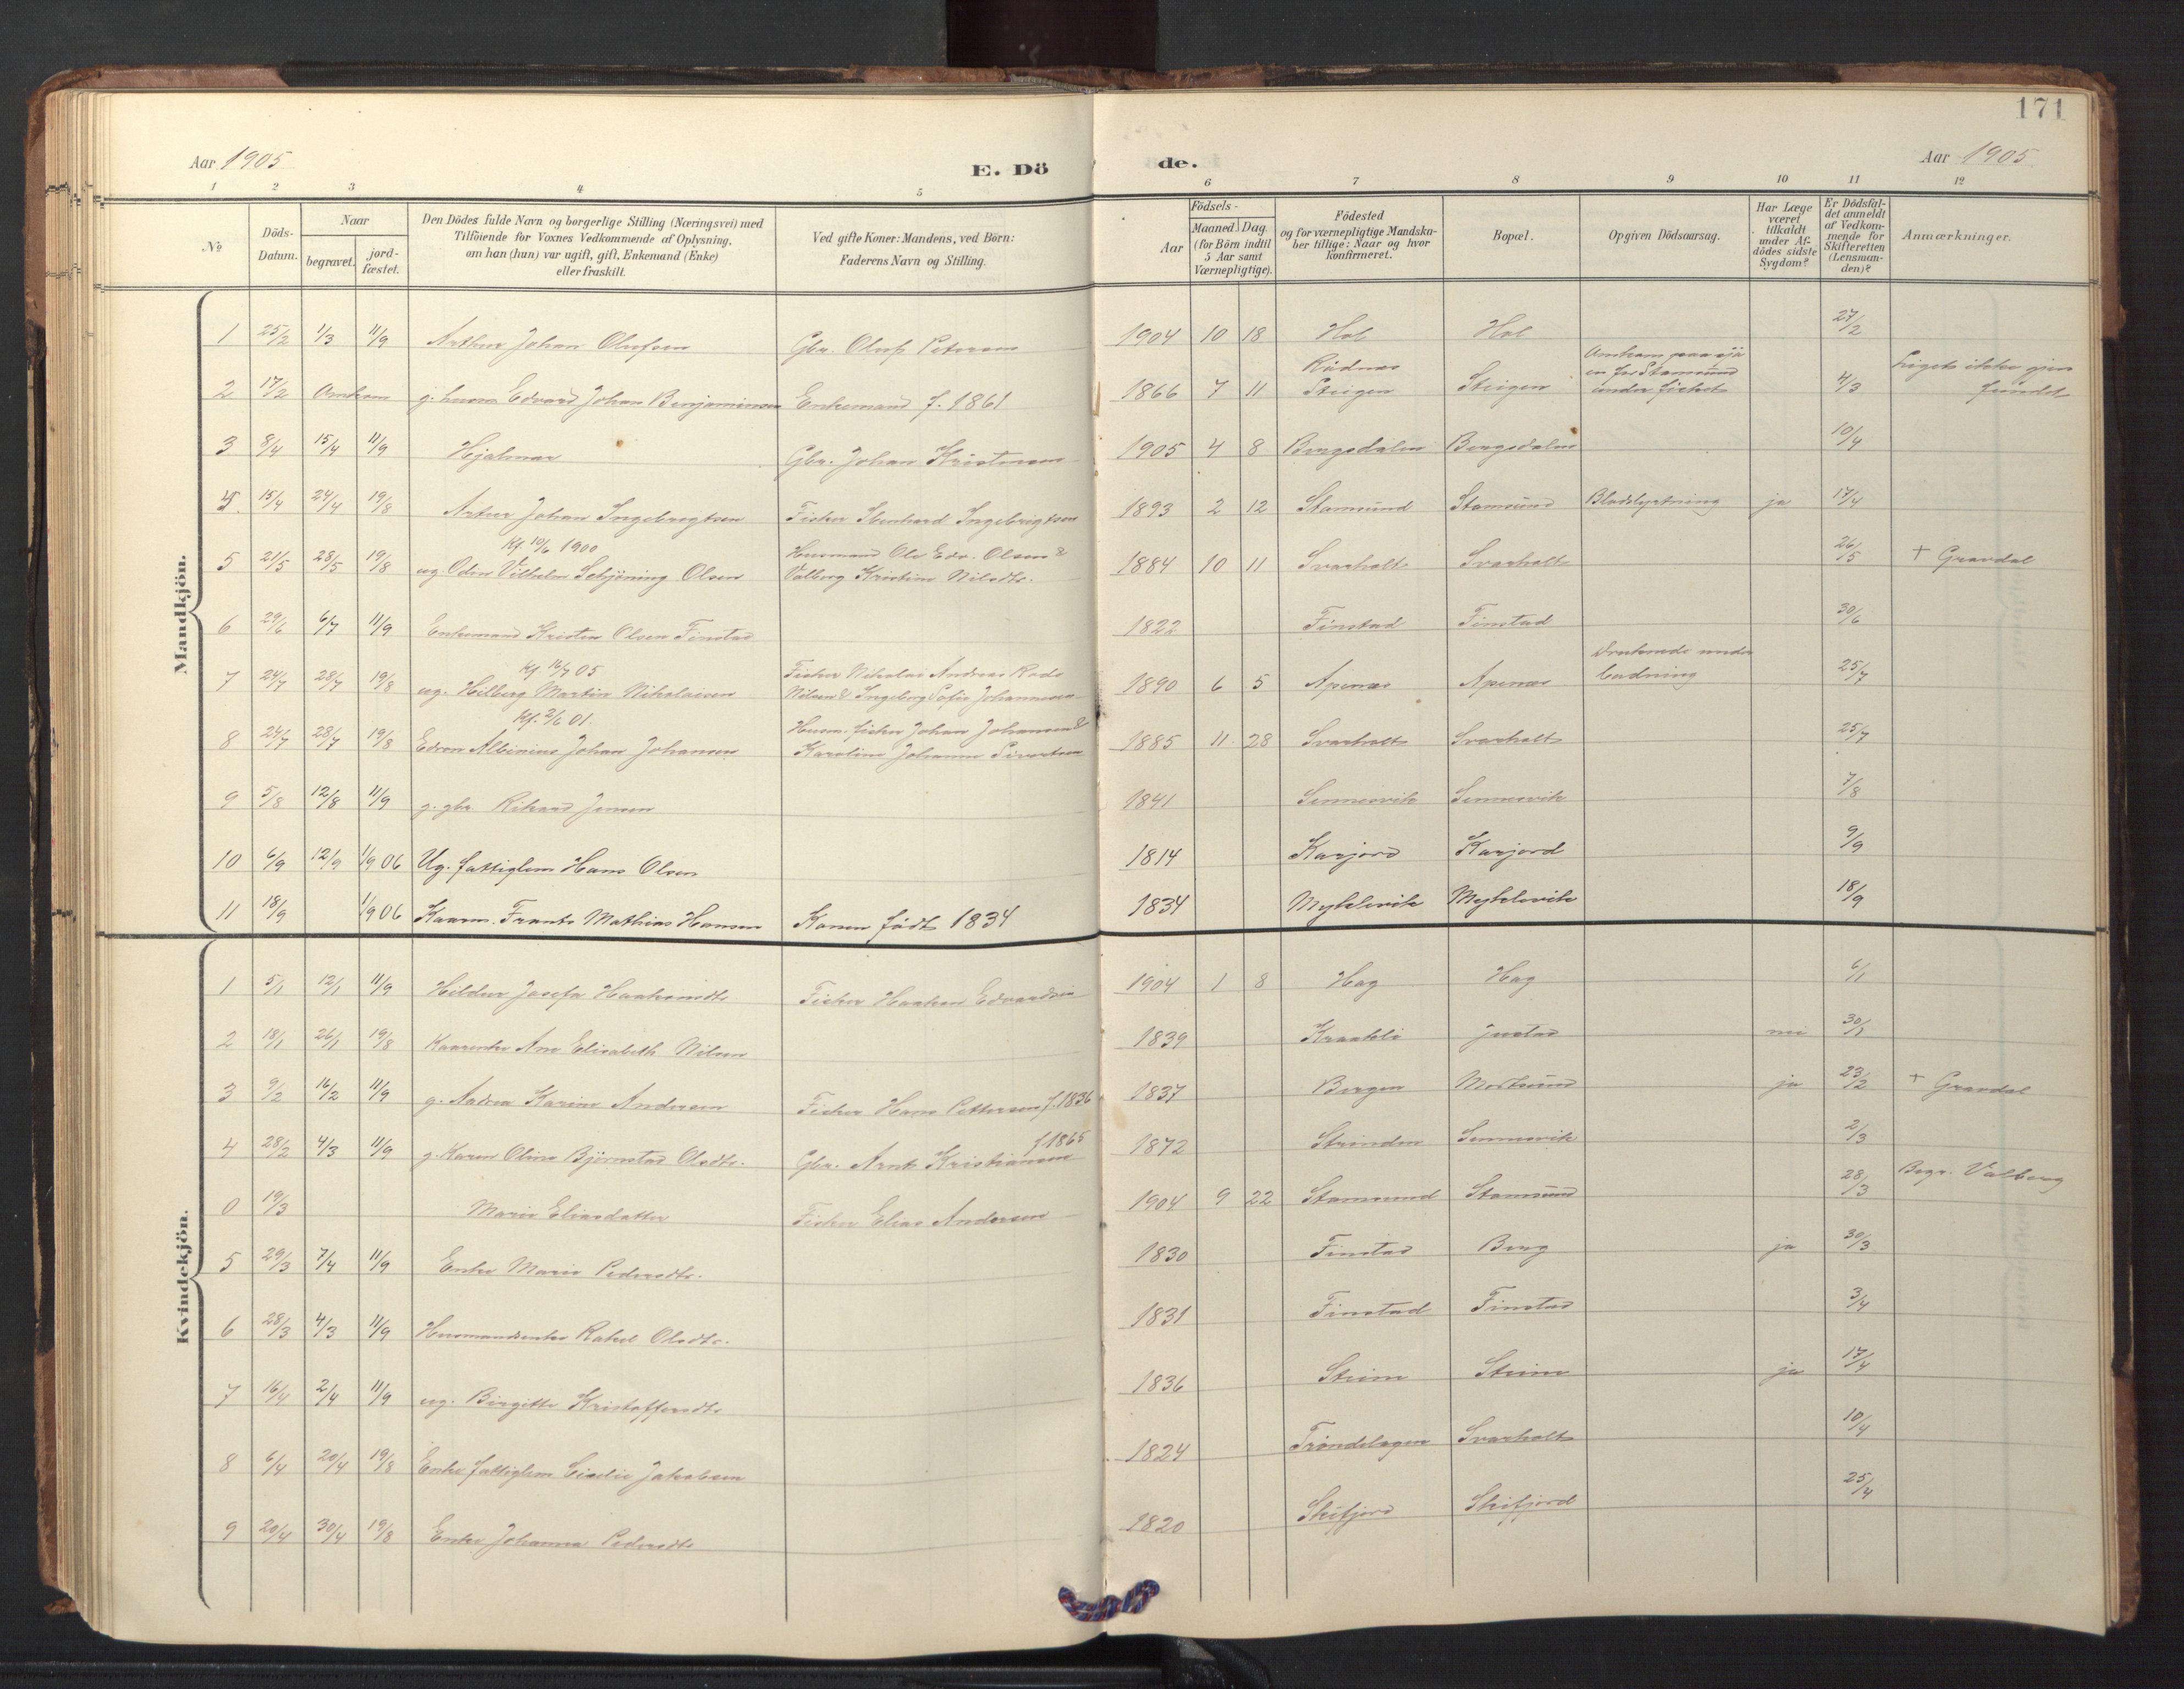 171
Aar 1905
E. Dö
de.
Aar 1905
1 2 3 4 5
6 7 8 9 10 11 12
No
Döds-
Datum.
Naar
begravet.
jord-
fæstet.
Den Dödes fulde Navn og borgerlige Stilling (Næringsvei) med
Tilföiende for Voxnes Vedkommende af Oplysning,
om han (hun) var ugift, gift, Enkemand (Enke)
eller fraskilt.
Ved gifte Koner: Mandens, ved Börn:
Faderens Navn og Stilling.
Födsels-
Aar
Maaned Dag
(for Börn indtil
5 Aar samt
Værnepligtige).
Födested
og for værnepligtige Mandska-
ber tillige: Naar og hvor
konfirmeret.
Bopæl.
Opgiven Dödsaarsag.
Har Læge
været
tilkaldt
under Af-
dödes sidste
Sygdom?
Er Dödsfal-
det anmeldt
af Vedkom-
mende for
Skifteretten
(Lensman-
den)?
Anmærkninger.
Mandkjön.
1 25/2 1/3 11/9 Arthur Johan Olufsen Gbr. Oluf Petersen 1904 10 18 Hol Hol 27/2
2 17/2 Omkom g. husm Edvard Johan Benjaminsen Enkemand f. 1861 1866 7 11 Steigen Steigen Omkom paa sjö
en for Stamsund
under fisket 4/3 Liget ikke gjen
fundet
3 8/4 15/4 11/9 Hjalmar Gbr. Johan Kristensen 1905 4 8 Borgsdalen Borgsdalen 10/4
4 15/4 24/4 19/8 Artur Johan Ingebrigtsen Fisker Ingebrigtsen 1893 2 12 Stamsund Stamsund Blodstyrtning ja 17/4
Kf. 10/6 1900
5 21/5 28/5 19/8 ug. Odin Vilhelm Schjöning Olsen Husmand Ole Edv. Olsen &
Valborg Kristine Nilsdtr. 1884 10 11 Svarholt Svarholt 26/5 + Gravdal
6 29/6 6/7 11/9 Enkemand Kristen Olsen Finstad 1822 Finstad Finstad 30/6
Kf. 16/7 05
7 24/7 28/7 19/8 ug. Hilberg Martin Nikolaisen Fisker Nikolai Andreas Rode
Nilsen & Ingeborg Sofie Johannesen 1890 6 5 Apenæs Apenæs Druknede under
badning 25/7
Kf. 2/6 01.
8 24/7 28/7 19/8 Edvon Albinius Johan Johansen Husm. fisker Johan Johansen &
Karoline Johanna Sivertsen 1885 11 28 Svarholt Svarholt 25/7
9 5/8 12/8 11/9 g. gbr. Rikard Jensen 1841 Sennesvik Sennesvik 7/8
10 6/9 12/9 1/9 06 Ug. fattiglem Hans Olsen 1814 Karjord Karjord 9/9
11 18/9 1/9 06 Kaarm. Frants Mathias Hansen Konen födt 1834 1834 Myklevik Myklevik 18/9
Kvindekjön.
1 5/1 12/1 11/9 Hildur Josefa Haakonsdtr Fisker Haakon Edvardsen 1904 1 8 Hag Hag 6/1
2 18/1 26/1 19/8 Kaarenke Ane Elisabeth Nilsen 1839 Kraakli Justad nei 30/1
3 9/2 16/2 11/9 g. Andrea Karine Andersen Fisker Hans Pettersen f. 1836 1837 Bergen Mortsund ja 23/2 + Gravdal
4 28/2 4/3 11/9 g. Karen Olina Björnstad Olsdtr. Gbr. Arnt Kristiansen f. 1865 1872 Stranden Sennesvik 2/3
0 19/3 Marie Eliasdatter Fisker Elias Andersen 1904 9 22 Stamsund Stamsund 28/3 Begr. Valberg
5 29/3 7/4 11/9 Enke Marie Pedersdtr. 1830 Finstad Berg ja 30/3
6 28/3 4/3 11/9 Husmandsenke Rakel Olsdtr. 1831 Finstad Finstad 3/4
7 16/4 2/4 11/9 ug. Birgitte Kristoffersdtr 1836 Steine Steine ja 17/4
8 6/4 20/4 19/8 Enke fattiglem Jakobsen 1824 Tröndelagen Svarholt 10/4
9 20/4 30/4 19/8 Enke Johanna Pedersdtr 1820 Skifjord Skifjord 25/4